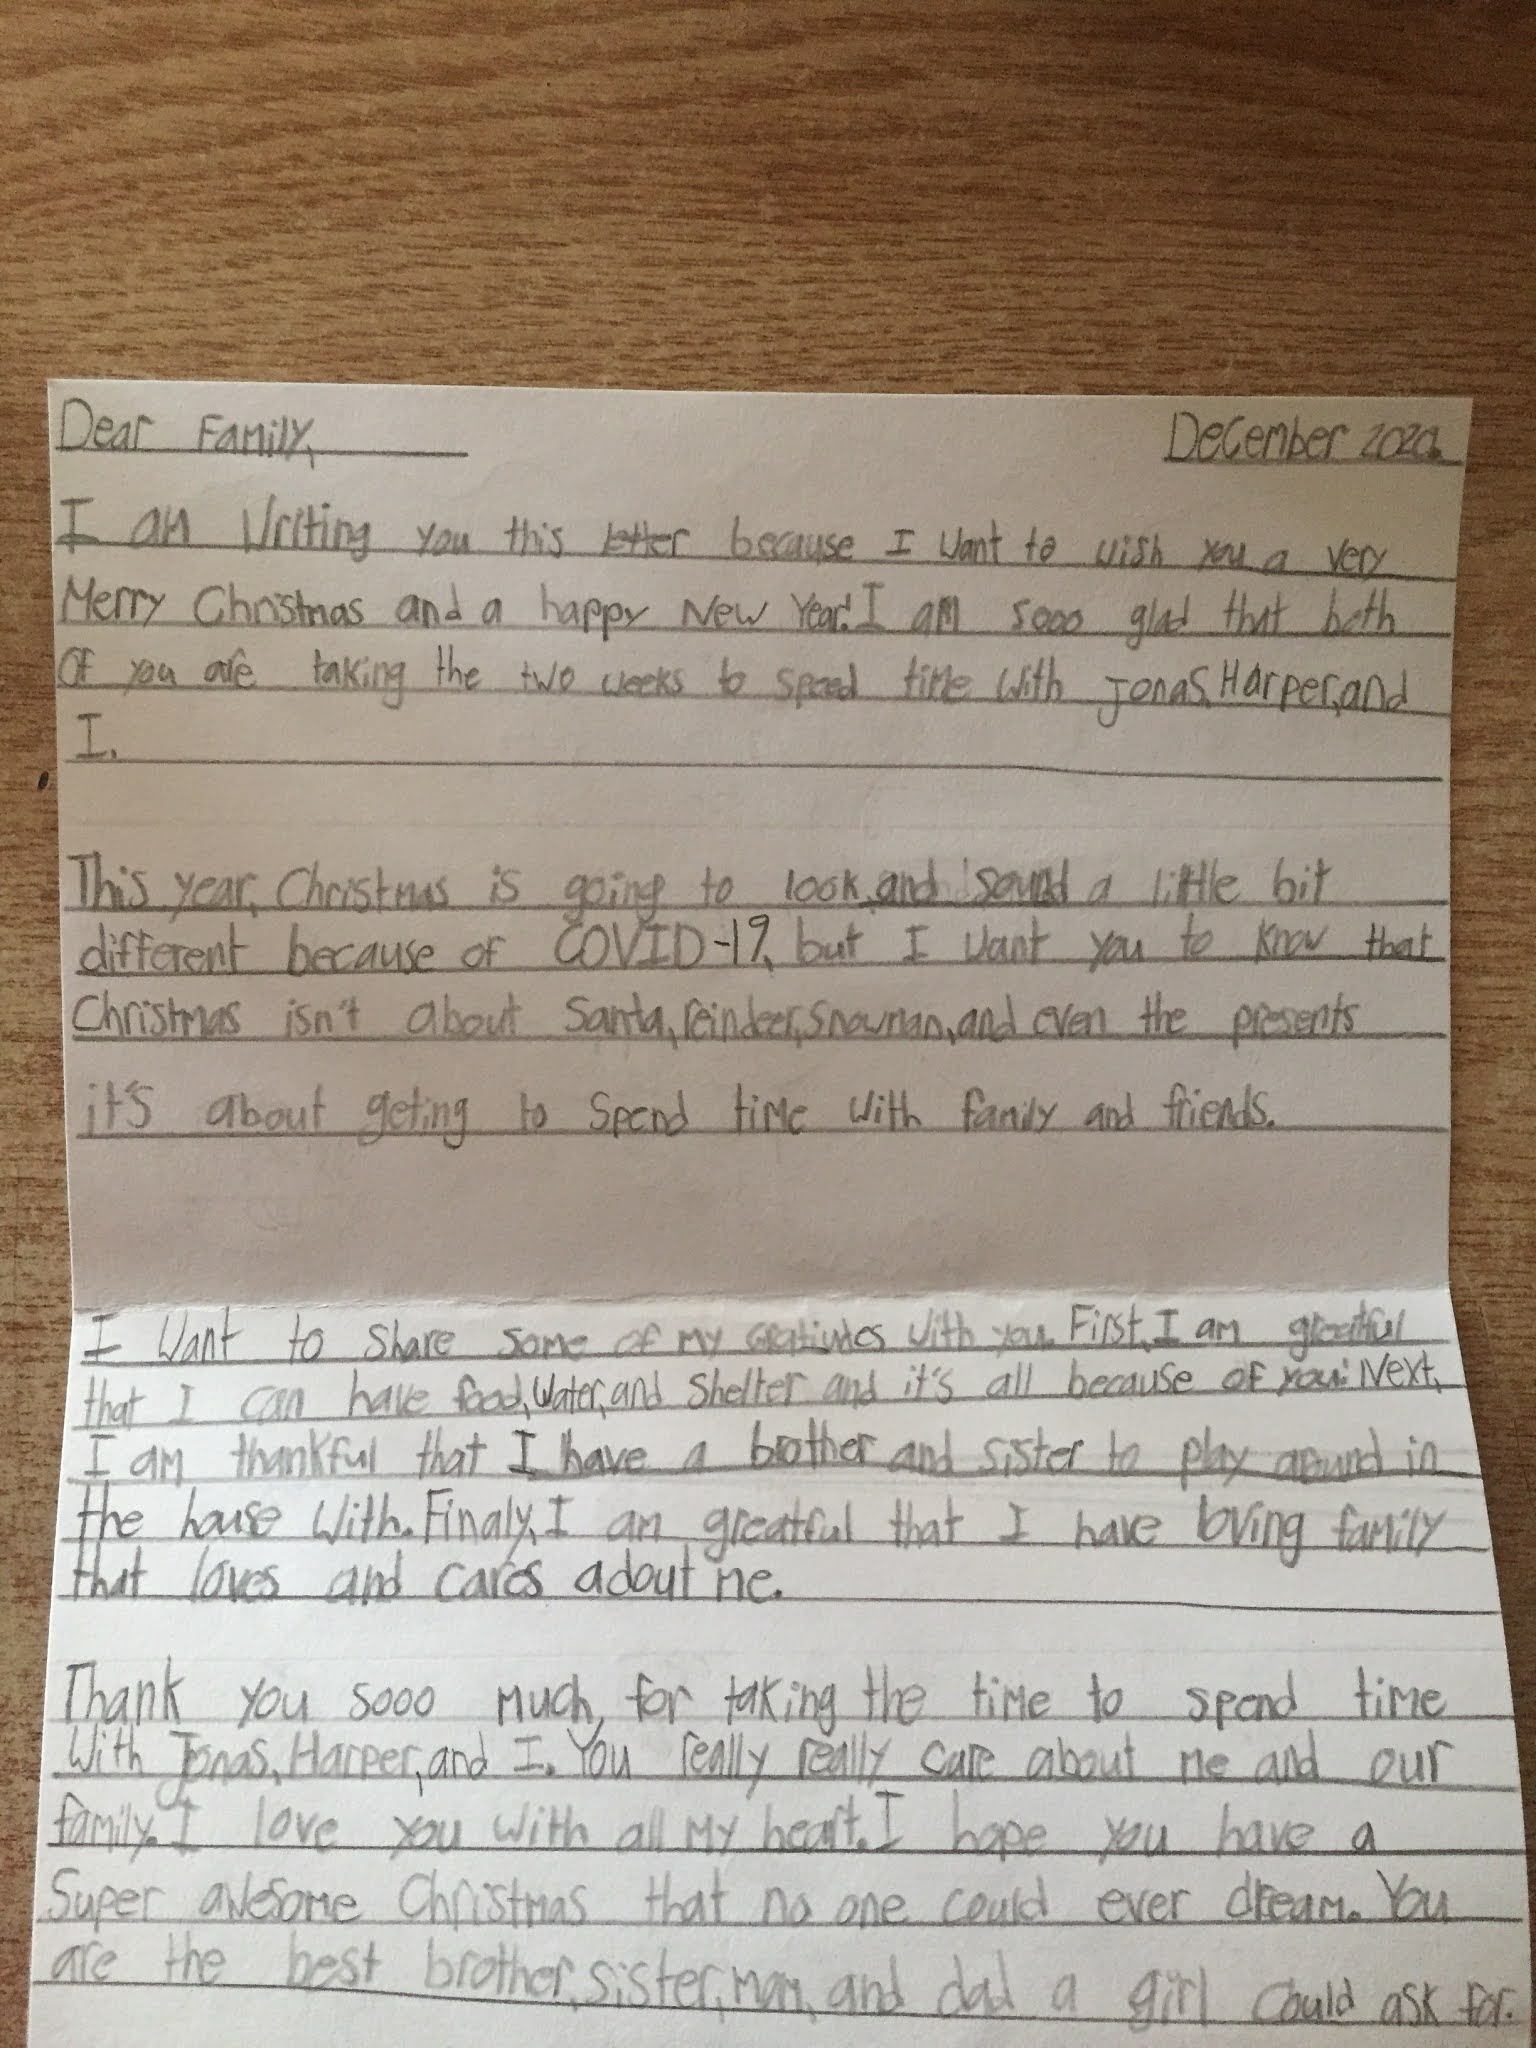 Dear Family,
December 2020.
I am Writing you this letter because I want to wish you a very
Merry Christmas and a happy New Year! I am sooo glad that both
of you are taking the two weeks to speed time with Jonas, Harper, and
I.
This year, Christmas is going to look and sound a little bit
different because of COVID-19, but I want you to know that
Christmas isn't about Santa, reindeer, snowman, and even the presents
it's about geting to spend time with family and friends.
I want to share some of my with you. First, I am greatful
that I can have food, water, and shelter and it's all because of you! Next,
I am thankful that I have a brother and sister to play around in
the house with. Finaly, I am greatful that I have loving family
that loves and cares adout me.
Thank you sooo much, for taking the time to spend time
with Jonas, Harper, and I. You really really care about me and our
family. I love you with all my heart. I hope you have a
super awesome Christmas that no one could ever dream. You
are the best brother, sister, mom, and dad a girl could ask for.